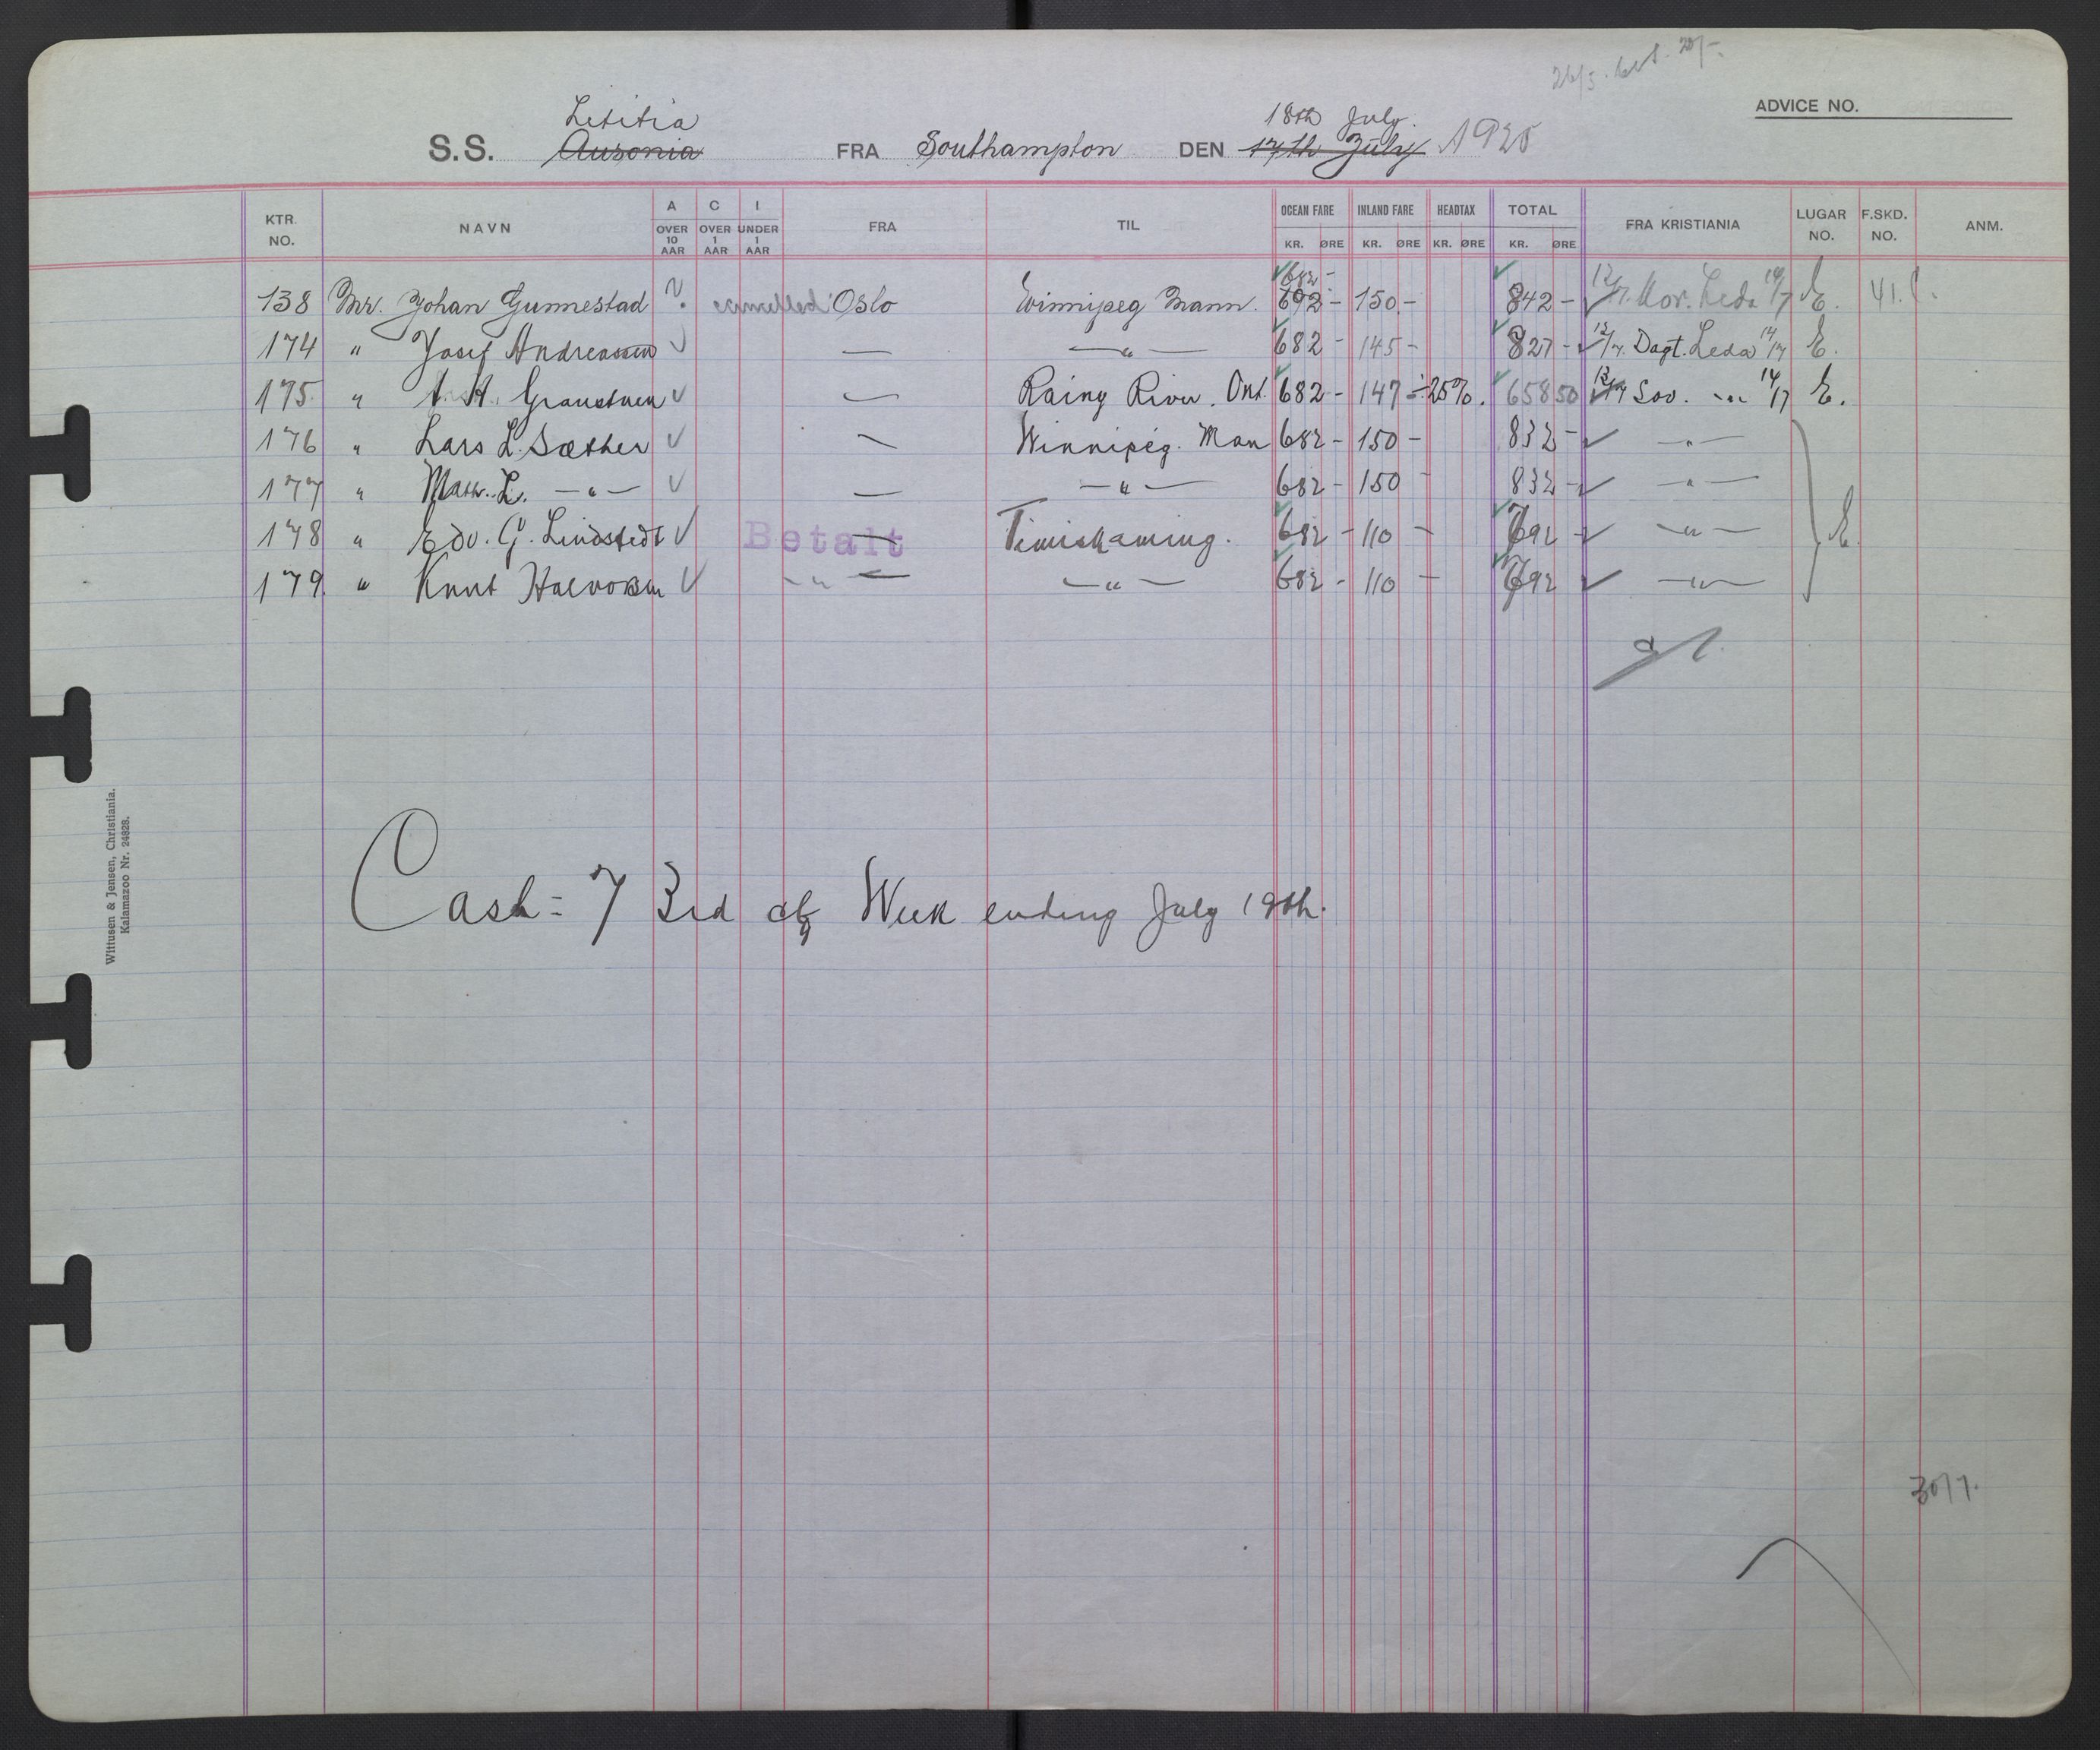 ADVICE NO.
Letitia 18th July.
S.S. Ausonia FRA Southampton DEN 17th July 1925
KTR. NO. NAVN A OVER 10 AAR C OVER 1 AAR I UNDER 1 AAR FRA TIL OCEAN FARE KR. ØRE INLAND FARE KR. ØRE HEADTAX KR. ØRE TOTAL KR. ØRE FRA KRISTIANIA LUGAR NO. F.SKD. NO. ANM.
682-
138 Mr. Johan Gunnestad ? cancelled Oslo Winnipeg Mann. 692- 150.- 842- ✓ Leda E. 41.
174 " Josef Andreassen ✓ — —"— 682- 145- 827- ✓ 12/7. Dagt. Leda 14/7 E.
175 " ✓ — Rainy River. Ont. 682- 147 ÷ 25%. 658 50 13/7 Sov. -"- 14/7 E.
176 " Lars L. Sæther ✓ — Winnipeg. Man 682- 150- 832- ✓ —"—
177 " L. —"— ✓ — —"— 682- 150- 832- ✓ —"—
178 " Edv. G. Lindstedt ✓ Betalt — Timiskaming. 682- 110- 792 ✓ —"— E.
179. " Knut Halvorsen ✓ -"- — —"— 682- 110- 792 ✓ —"—
Cash = 7 3rd cl Week ending July 18th.
Wittusen & Jensen, Christiania.
Kalamazoo Nr. 24828.
30/7.